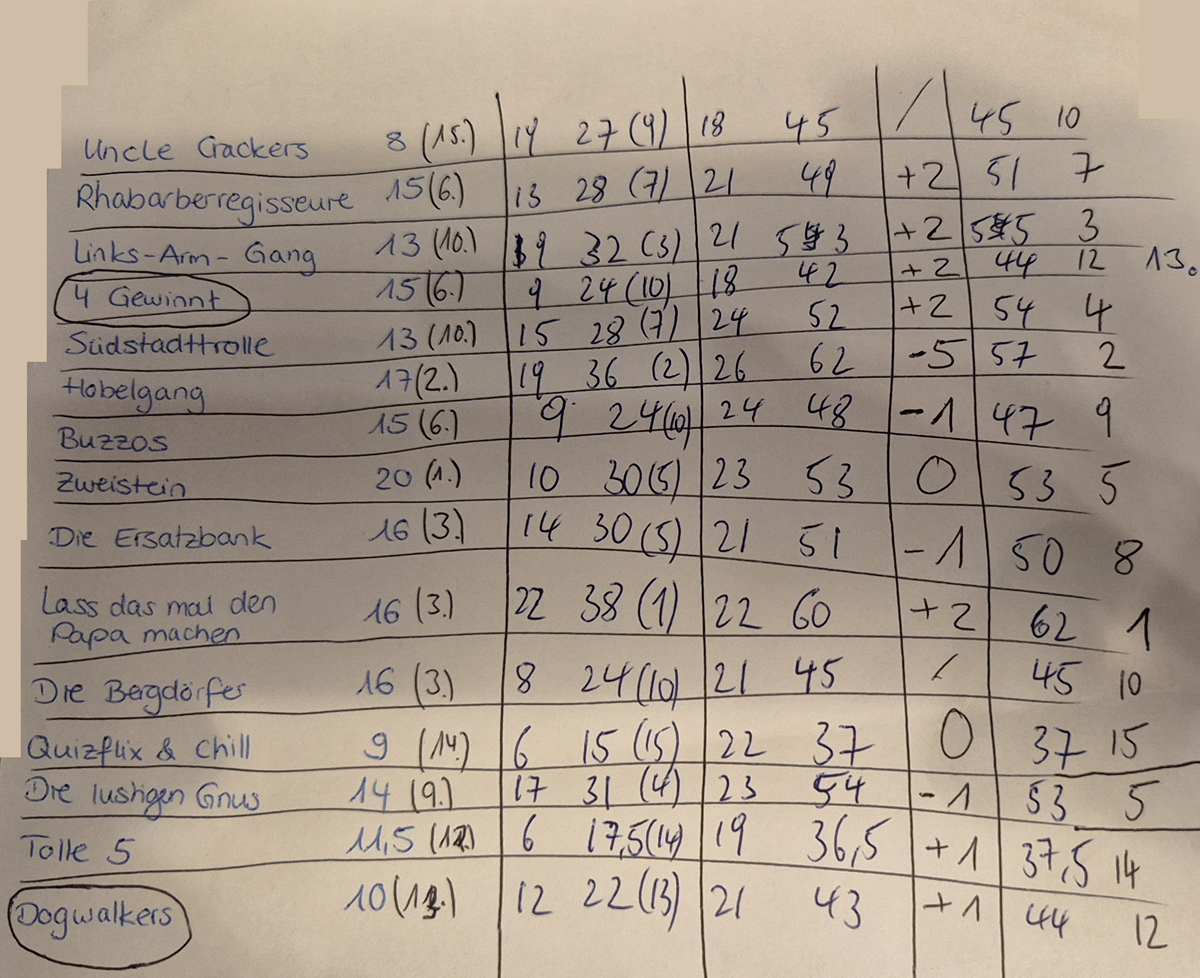 Uncle Crackers 8 (15.) 19 27 (9) 18 45 / 45 10
Rhabarberregisseure 15 (6.) 13 28 (7) 21 49 +2 51 7
Links-Arm-Gang 13 (10.) 19 32 (3) 21 53 +2 55 3
4 Gewinnt 15 (6.) 9 24 (10) 18 42 +2 44 12 13.
Südstadttrolle 13 (10.) 15 28 (7) 24 52 +2 54 4
Hobelgang 17 (2.) 19 36 (2) 26 62 -5 57 2
Buzzos 15 (6.) 9 24 (10) 24 48 -1 47 9
Zweistein 20 (1.) 10 30 (5) 23 53 0 53 5
Die Ersatzbank 16 (3.) 14 30 (5) 21 51 -1 50 8
Lass das mal den
Papa machen 16 (3.) 22 38 (1) 22 60 +2 62 1
Die Bergdörfer 16 (3.) 8 24 (10) 21 45 / 45 10
Quizflix & Chill 9 (14.) 6 15 (15) 22 37 0 37 15
Die lustigen Gnus 14 (9.) 17 31 (4) 23 54 -1 53 5
Tolle 5 11,5 (12.) 6 17,5 (14) 19 36,5 +1 37,5 14
Dogwalkers 10 (13.) 12 22 (13) 21 43 +1 44 12